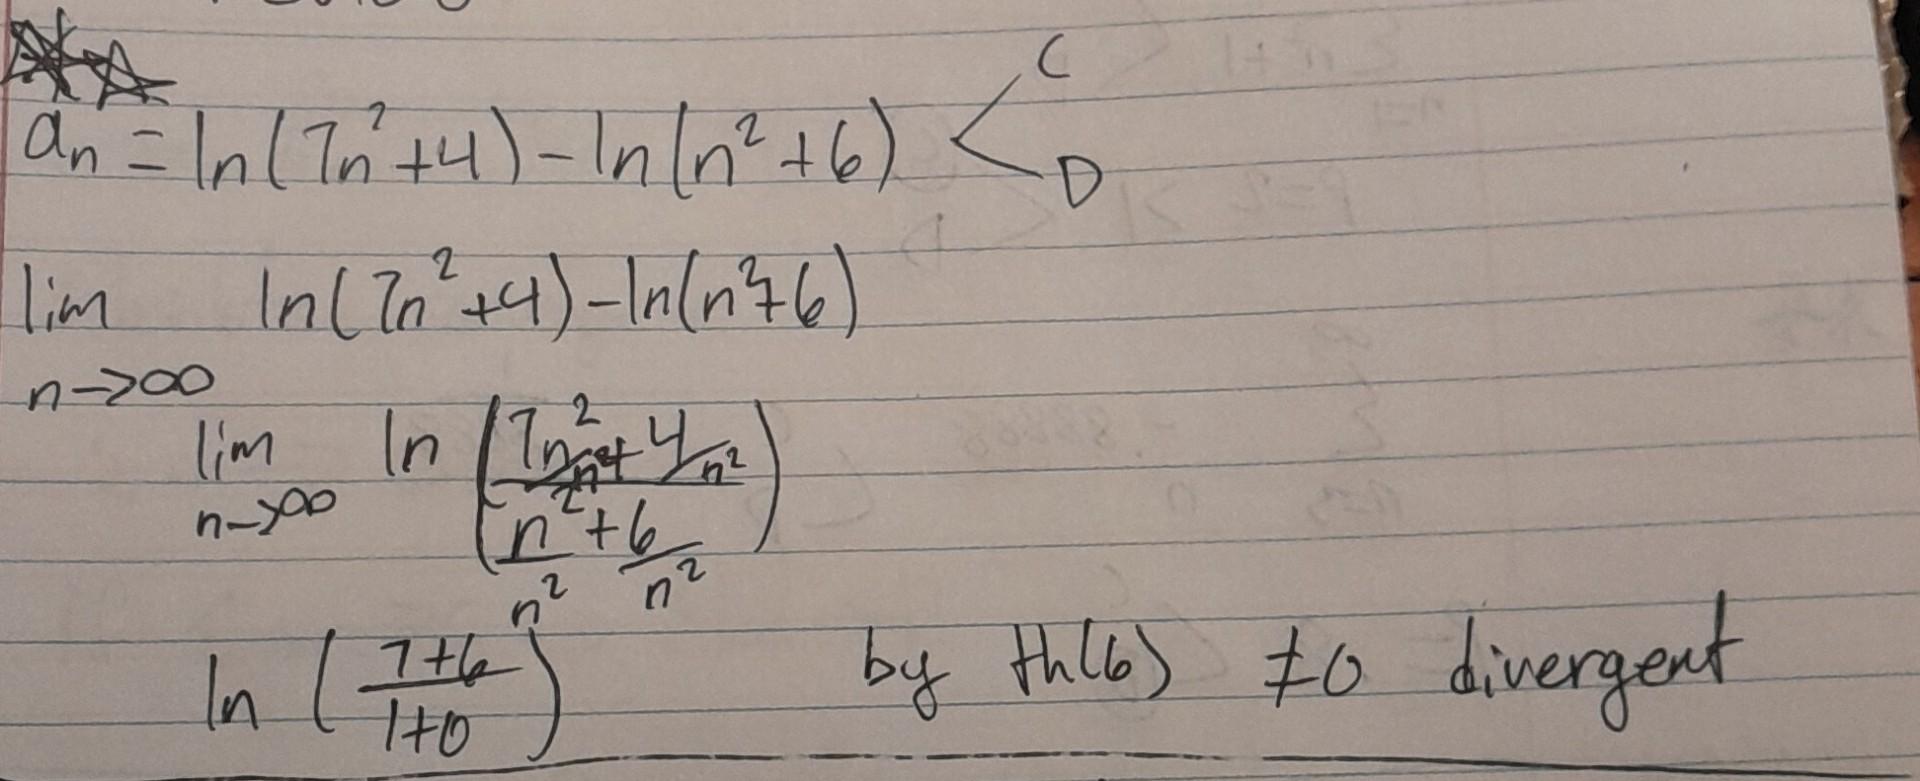 aₙ = ln(7n²+4) - ln(n²+6) < C
D
lim ln(7n²+4) - ln(n²+6)
n→∞
lim ln (7n²/n² + 4/n² / n²/n² + 6/n²)
n→∞
ln (7+6 / 1+0) by th(6) ≠0 divergent